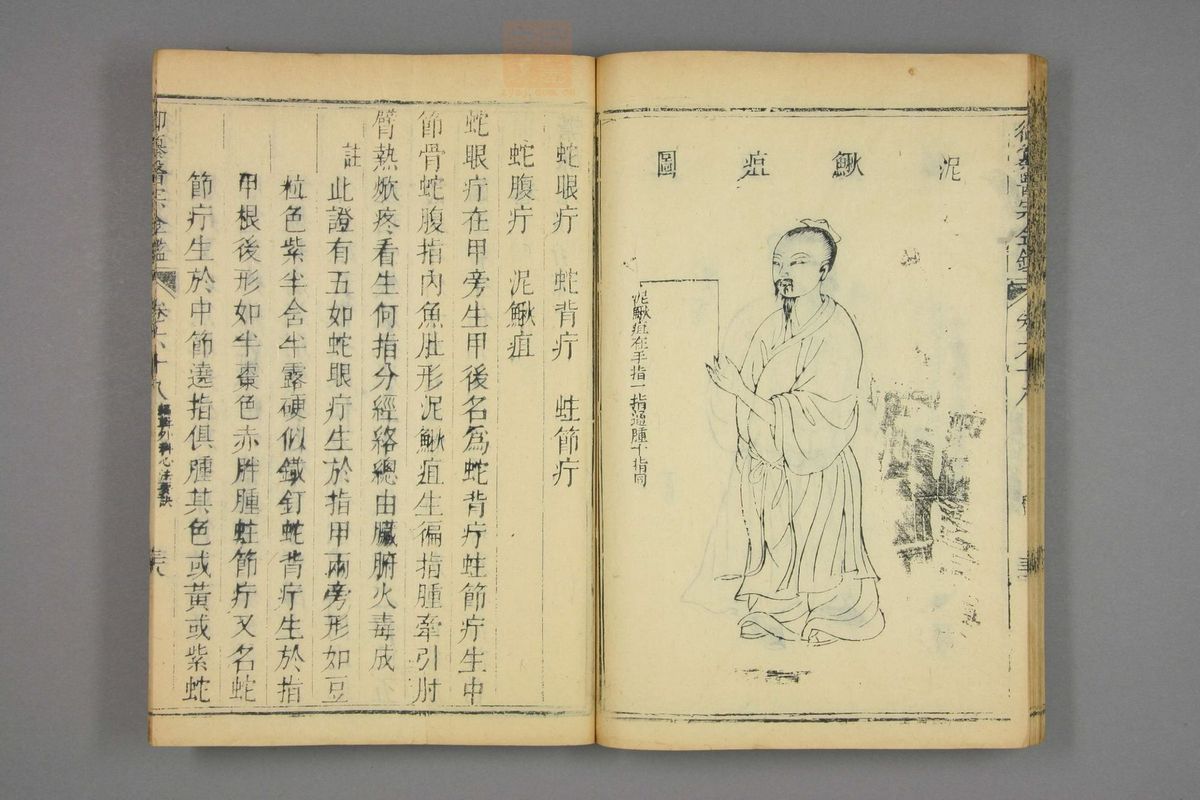 泥鰍疽圖
泥鰍疽在手指一指通腫十指同
蛇眼疔 蛇背疔 蛀節疔
蛇腹疔 泥鰍疽
蛇眼疔在甲旁生甲後名爲蛇背疔蛀節疔生中
節骨蛇腹指內魚肚形泥鰍疽生徧指腫牽引肘
臂熱焮疼看生何指分經絡總由臟腑火毒成
註此證有五如蛇眼疔生於指甲兩旁形如豆
粒色紫半含半露硬似鐵釘蛇背疔生於指
甲根後形如半棗色赤胖腫蛀節疔又名蛇
節疔生於中節遶指俱腫其色或黃或紫蛇
御纂醫宗金鑑
卷六十八
編輯外科心法要訣
三六